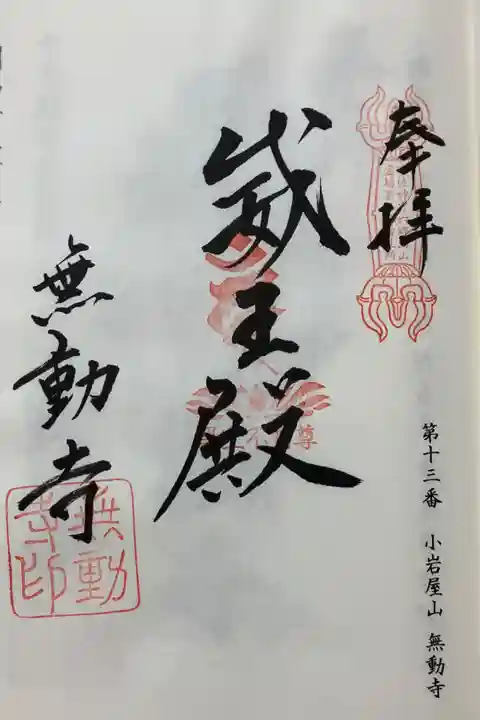 奉拝
第十三番 小岩屋山 無動寺
威王殿
無動寺
無動
寺印